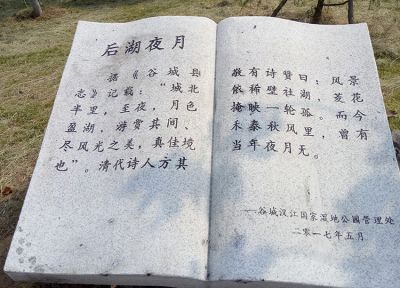 后湖夜月
据《谷城县
志》记载：“城北
半里，至夜，月色
盈湖，游赏其间、
尽风光之美，真佳境
也”。清代诗人方其
敬有诗赞曰：风景
依稀壁社湖，菱花
掩映一轮孤。而今
禾泰秋风里，曾有
当年夜月无。
——谷城汉江国家湿地公园管理处
二零一七年五月